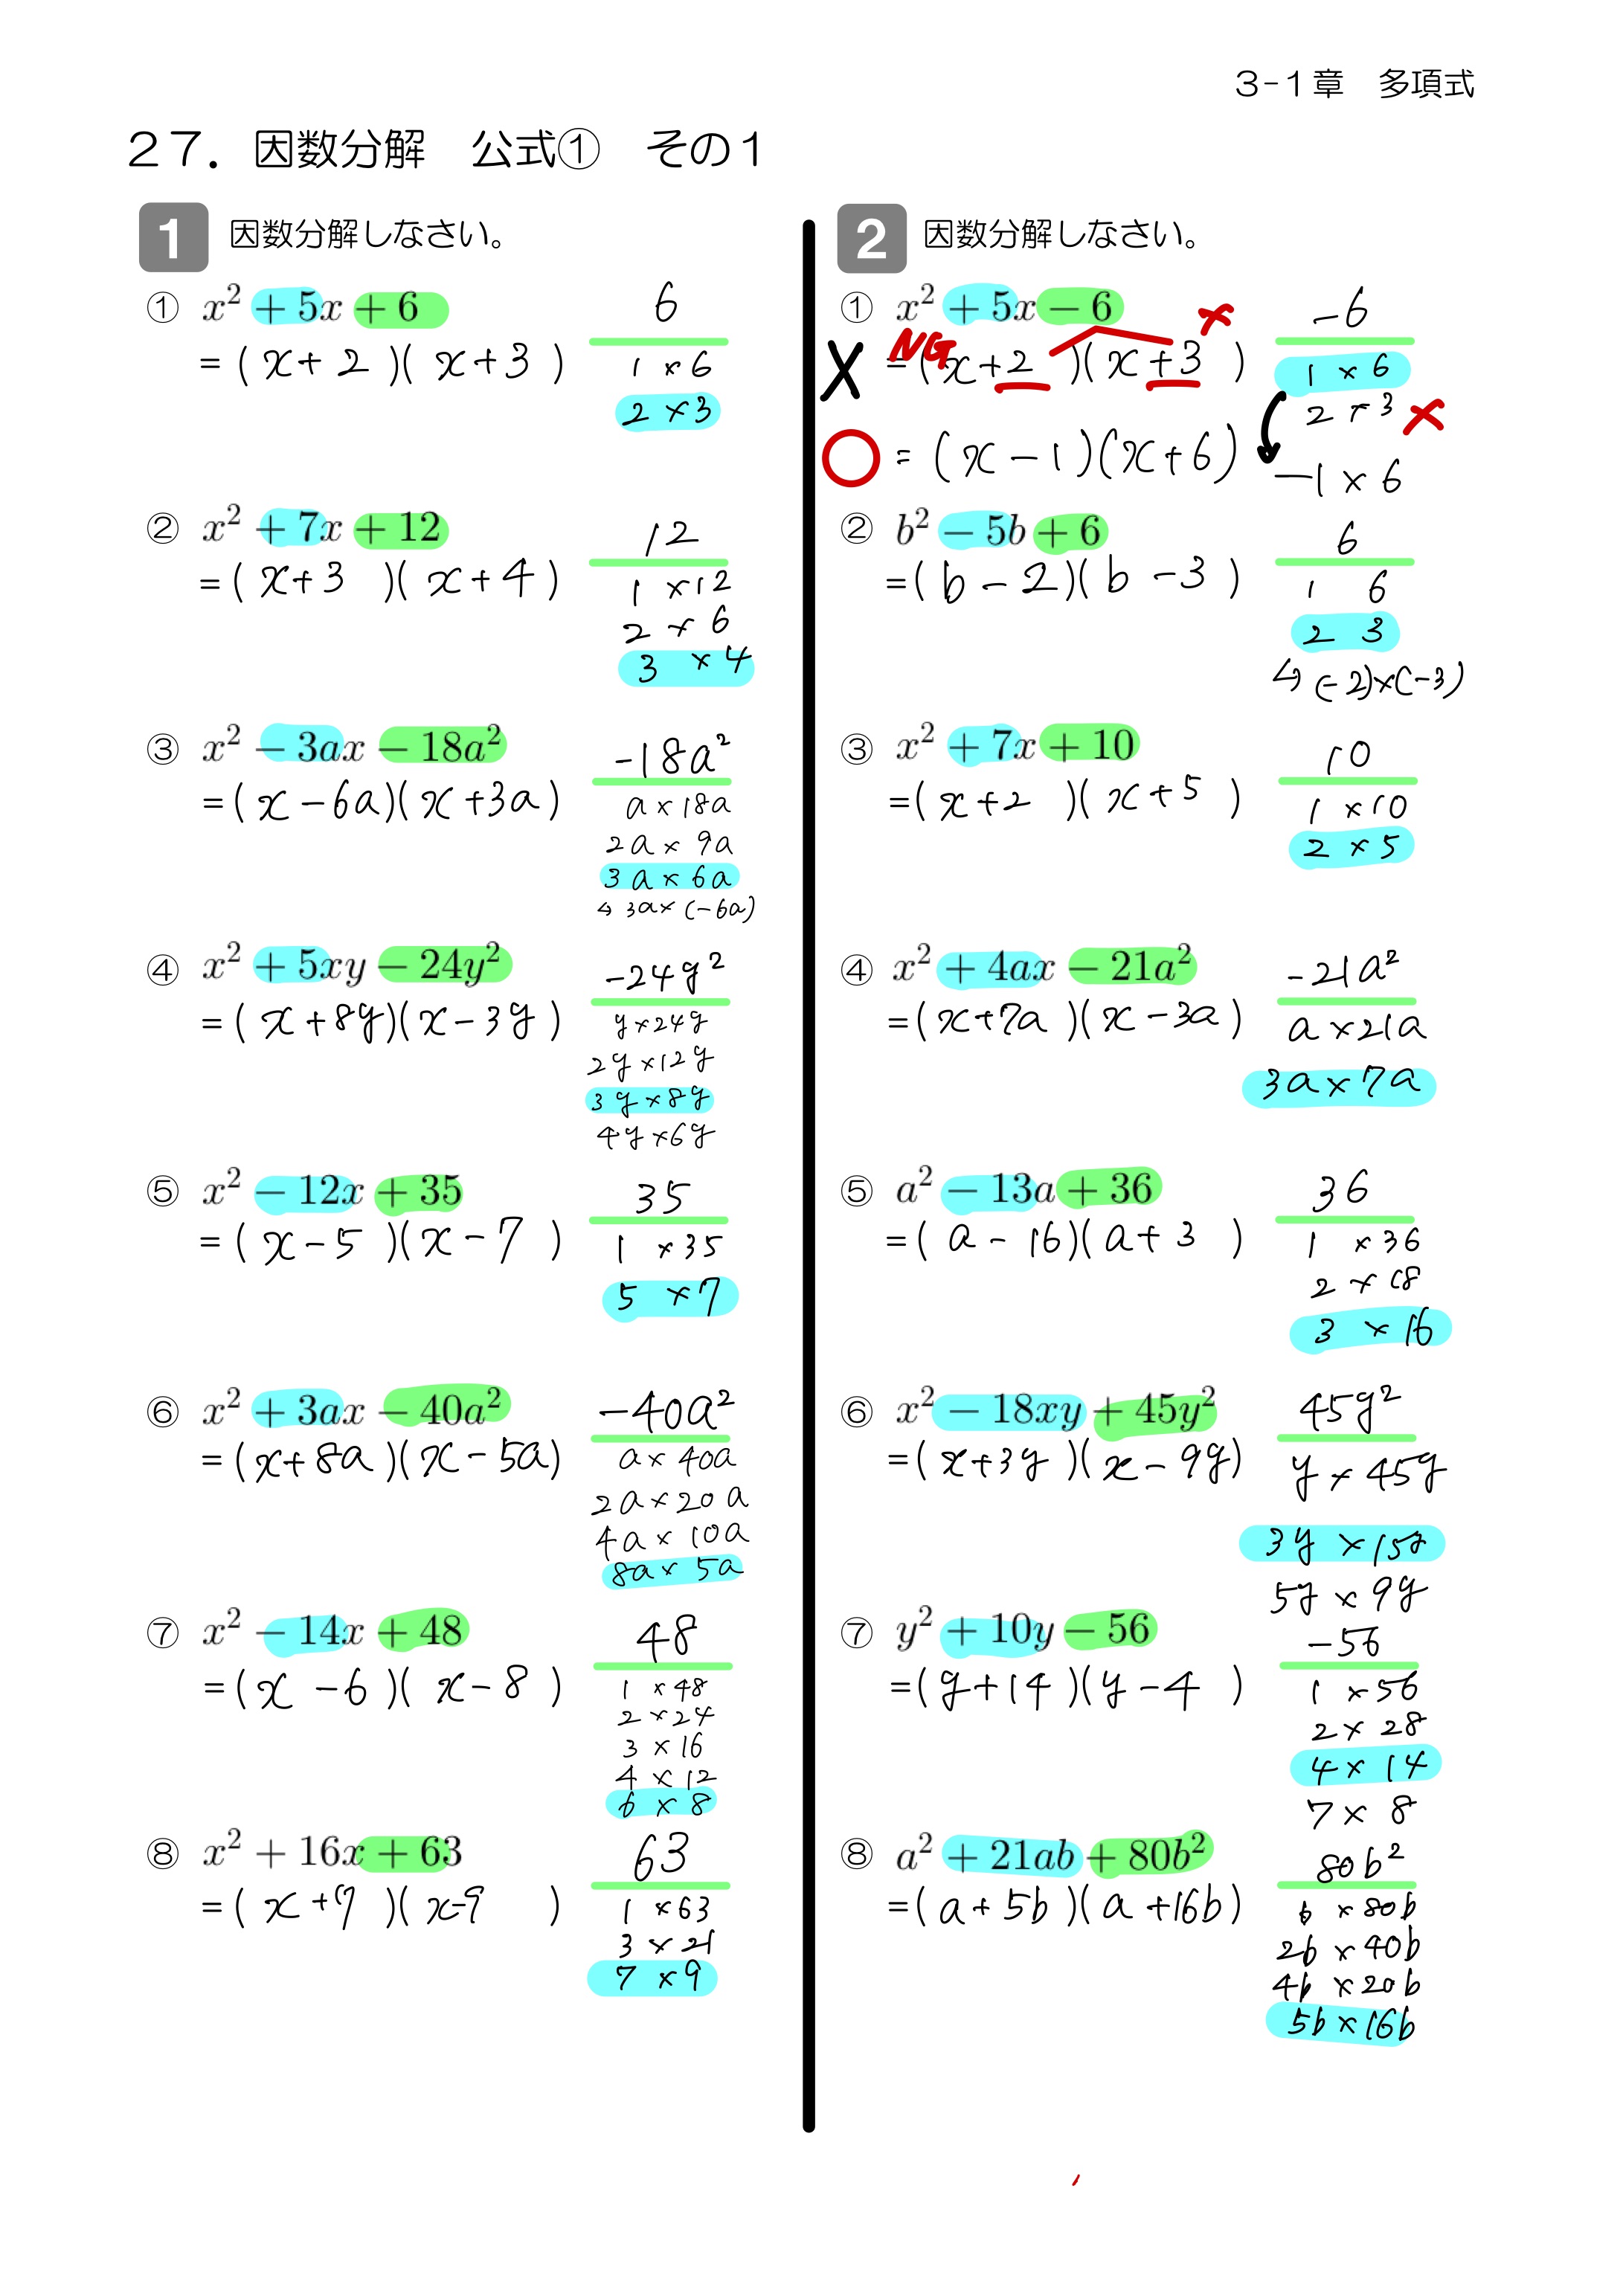 3-1章　多項式
27. 因数分解　公式①　その1
1 因数分解しなさい。
① x² + 5x + 6
= ( x + 2 )( x + 3 )
6
1 × 6
2 × 3
② x² + 7x + 12
= ( x + 3 )( x + 4 )
12
1 × 12
2 × 6
3 × 4
③ x² − 3ax − 18a²
= ( x − 6a )( x + 3a )
-18a²
a × 18a
2a × 9a
3a × 6a
↳ 3a × (-6a)
④ x² + 5xy − 24y²
= ( x + 8y )( x − 3y )
-24y²
y × 24y
2y × 12y
3y × 8y
4y × 6y
⑤ x² − 12x + 35
= ( x − 5 )( x − 7 )
35
1 × 35
5 × 7
⑥ x² + 3ax − 40a²
= ( x + 8a )( x − 5a )
-40a²
a × 40a
2a × 20a
4a × 10a
8a × 5a
⑦ x² − 14x + 48
= ( x − 6 )( x − 8 )
48
1 × 48
2 × 24
3 × 16
4 × 12
6 × 8
⑧ x² + 16x + 63
= ( x + 7 )( x - 9 )
63
1 × 63
3 × 21
7 × 9
2 因数分解しなさい。
① x² + 5x − 6
NG
X = ( x + 2 )( x + 3 ) ×
○ = ( x − 1 )( x + 6 )
-6
1 × 6
2 × 3 ×
-1 × 6
② b² − 5b + 6
= ( b − 2 )( b − 3 )
6
1 6
2 3
↳ (-2) × (-3)
③ x² + 7x + 10
= ( x + 2 )( x + 5 )
10
1 × 10
2 × 5
④ x² + 4ax − 21a²
= ( x + 7a )( x − 3a )
-21a²
a × 21a
3a × 7a
⑤ a² − 13a + 36
= ( a − 16 )( a + 3 )
36
1 × 36
2 × 18
3 × 16
⑥ x² − 18xy + 45y²
= ( x + 3y )( x − 9y )
45y²
y × 45y
3y × 15y
5y × 9y
⑦ y² + 10y − 56
= ( y + 14 )( y − 4 )
-56
1 × 56
2 × 28
4 × 14
7 × 8
⑧ a² + 21ab + 80b²
= ( a + 5b )( a + 16b )
80b²
b × 80b
2b × 40b
4b × 20b
5b × 16b